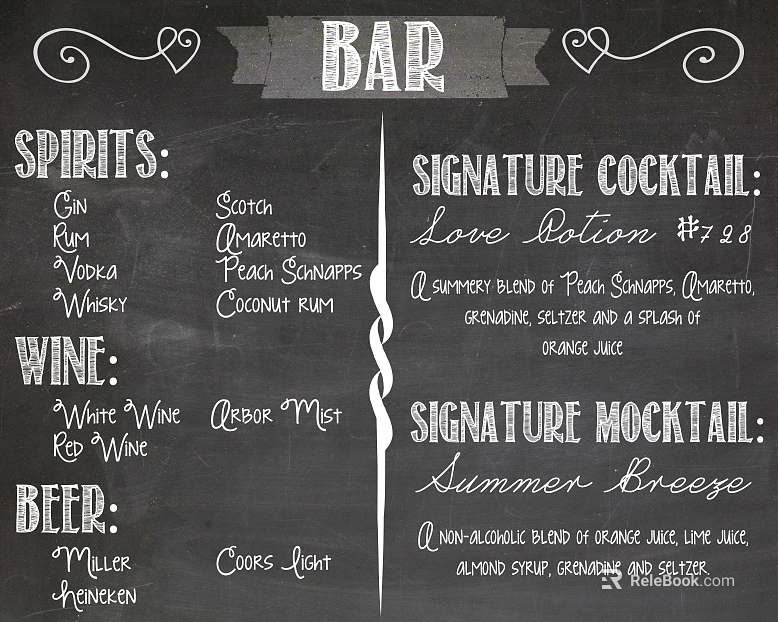 BAR
SPIRITS:
Gin
Rum
Vodka
Whisky
Scotch
Amaretto
Peach Schnapps
Coconut rum
WINE:
White Wine
Red Wine
Arbor Mist
BEER:
Miller
Heineken
Coors Light
SIGNATURE COCKTAIL:
Love Potion #728
A summery blend of Peach Schnapps, Amaretto,
grenadine, seltzer and a splash of
orange juice
SIGNATURE MOCKTAIL:
Summer Breeze
A non-alcoholic blend of orange juice, lime juice,
almond syrup, grenadine and seltzer.
ReleBook.com